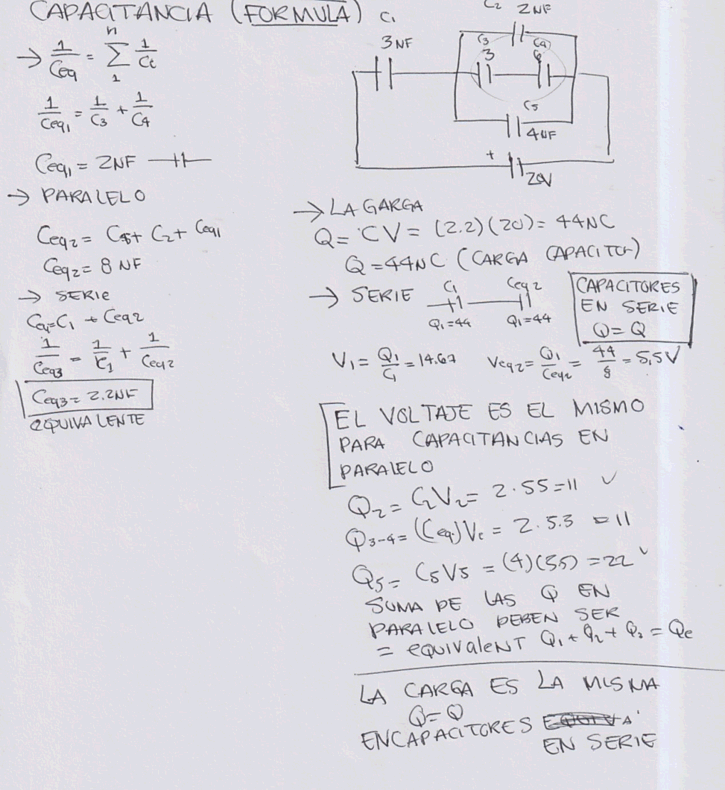 CAPACITANCIA (FORMULA)
→ 1/Ceq = n∑1 1/Ct
1/Ceq1 = 1/C3 + 1/C4
Ceq1 = 2NF
→ PARALELO
Ceq2 = C5 + C2 + Ceq1
Ceq2 = 8 NF
→ SERIE
Cq = C1 + Ceq2
1/Ceq3 = 1/C1 + 1/Ceq2
Ceq3 = 2.2NF
EQUIVALENTE
C1
3NF
C2 2NF
C3 C4
3 6
C5
4UF
+
20V
→ LA GARGA
Q = CV = (2.2)(20) = 44NC
Q = 44NC (CARGA CAPACITOR)
→ SERIE C1 Ceq2
Q1=44 Q1=44
CAPACITORES
EN SERIE
Q = Q
V1 = Q1/C1 = 14.67 Veq2 = Q1/Ceq2 = 44/8 = 5,5V
EL VOLTAJE ES EL MISMO
PARA CAPACITANCIAS EN
PARALELO
Q2 = C2V2 = 2·55=11 ✓
Q3-4 = (Ceq)Vc = 2·5.5 = 11
Q5 = C5V5 = (4)(55) = 22 ✓
SUMA DE LAS Q EN
PARALELO DEBEN SER
= EQUIVALENT Q1 + Q2 + Q3 = Qe
LA CARGA ES LA MISMA
Q=Q
EN CAPACITORES
EN SERIE